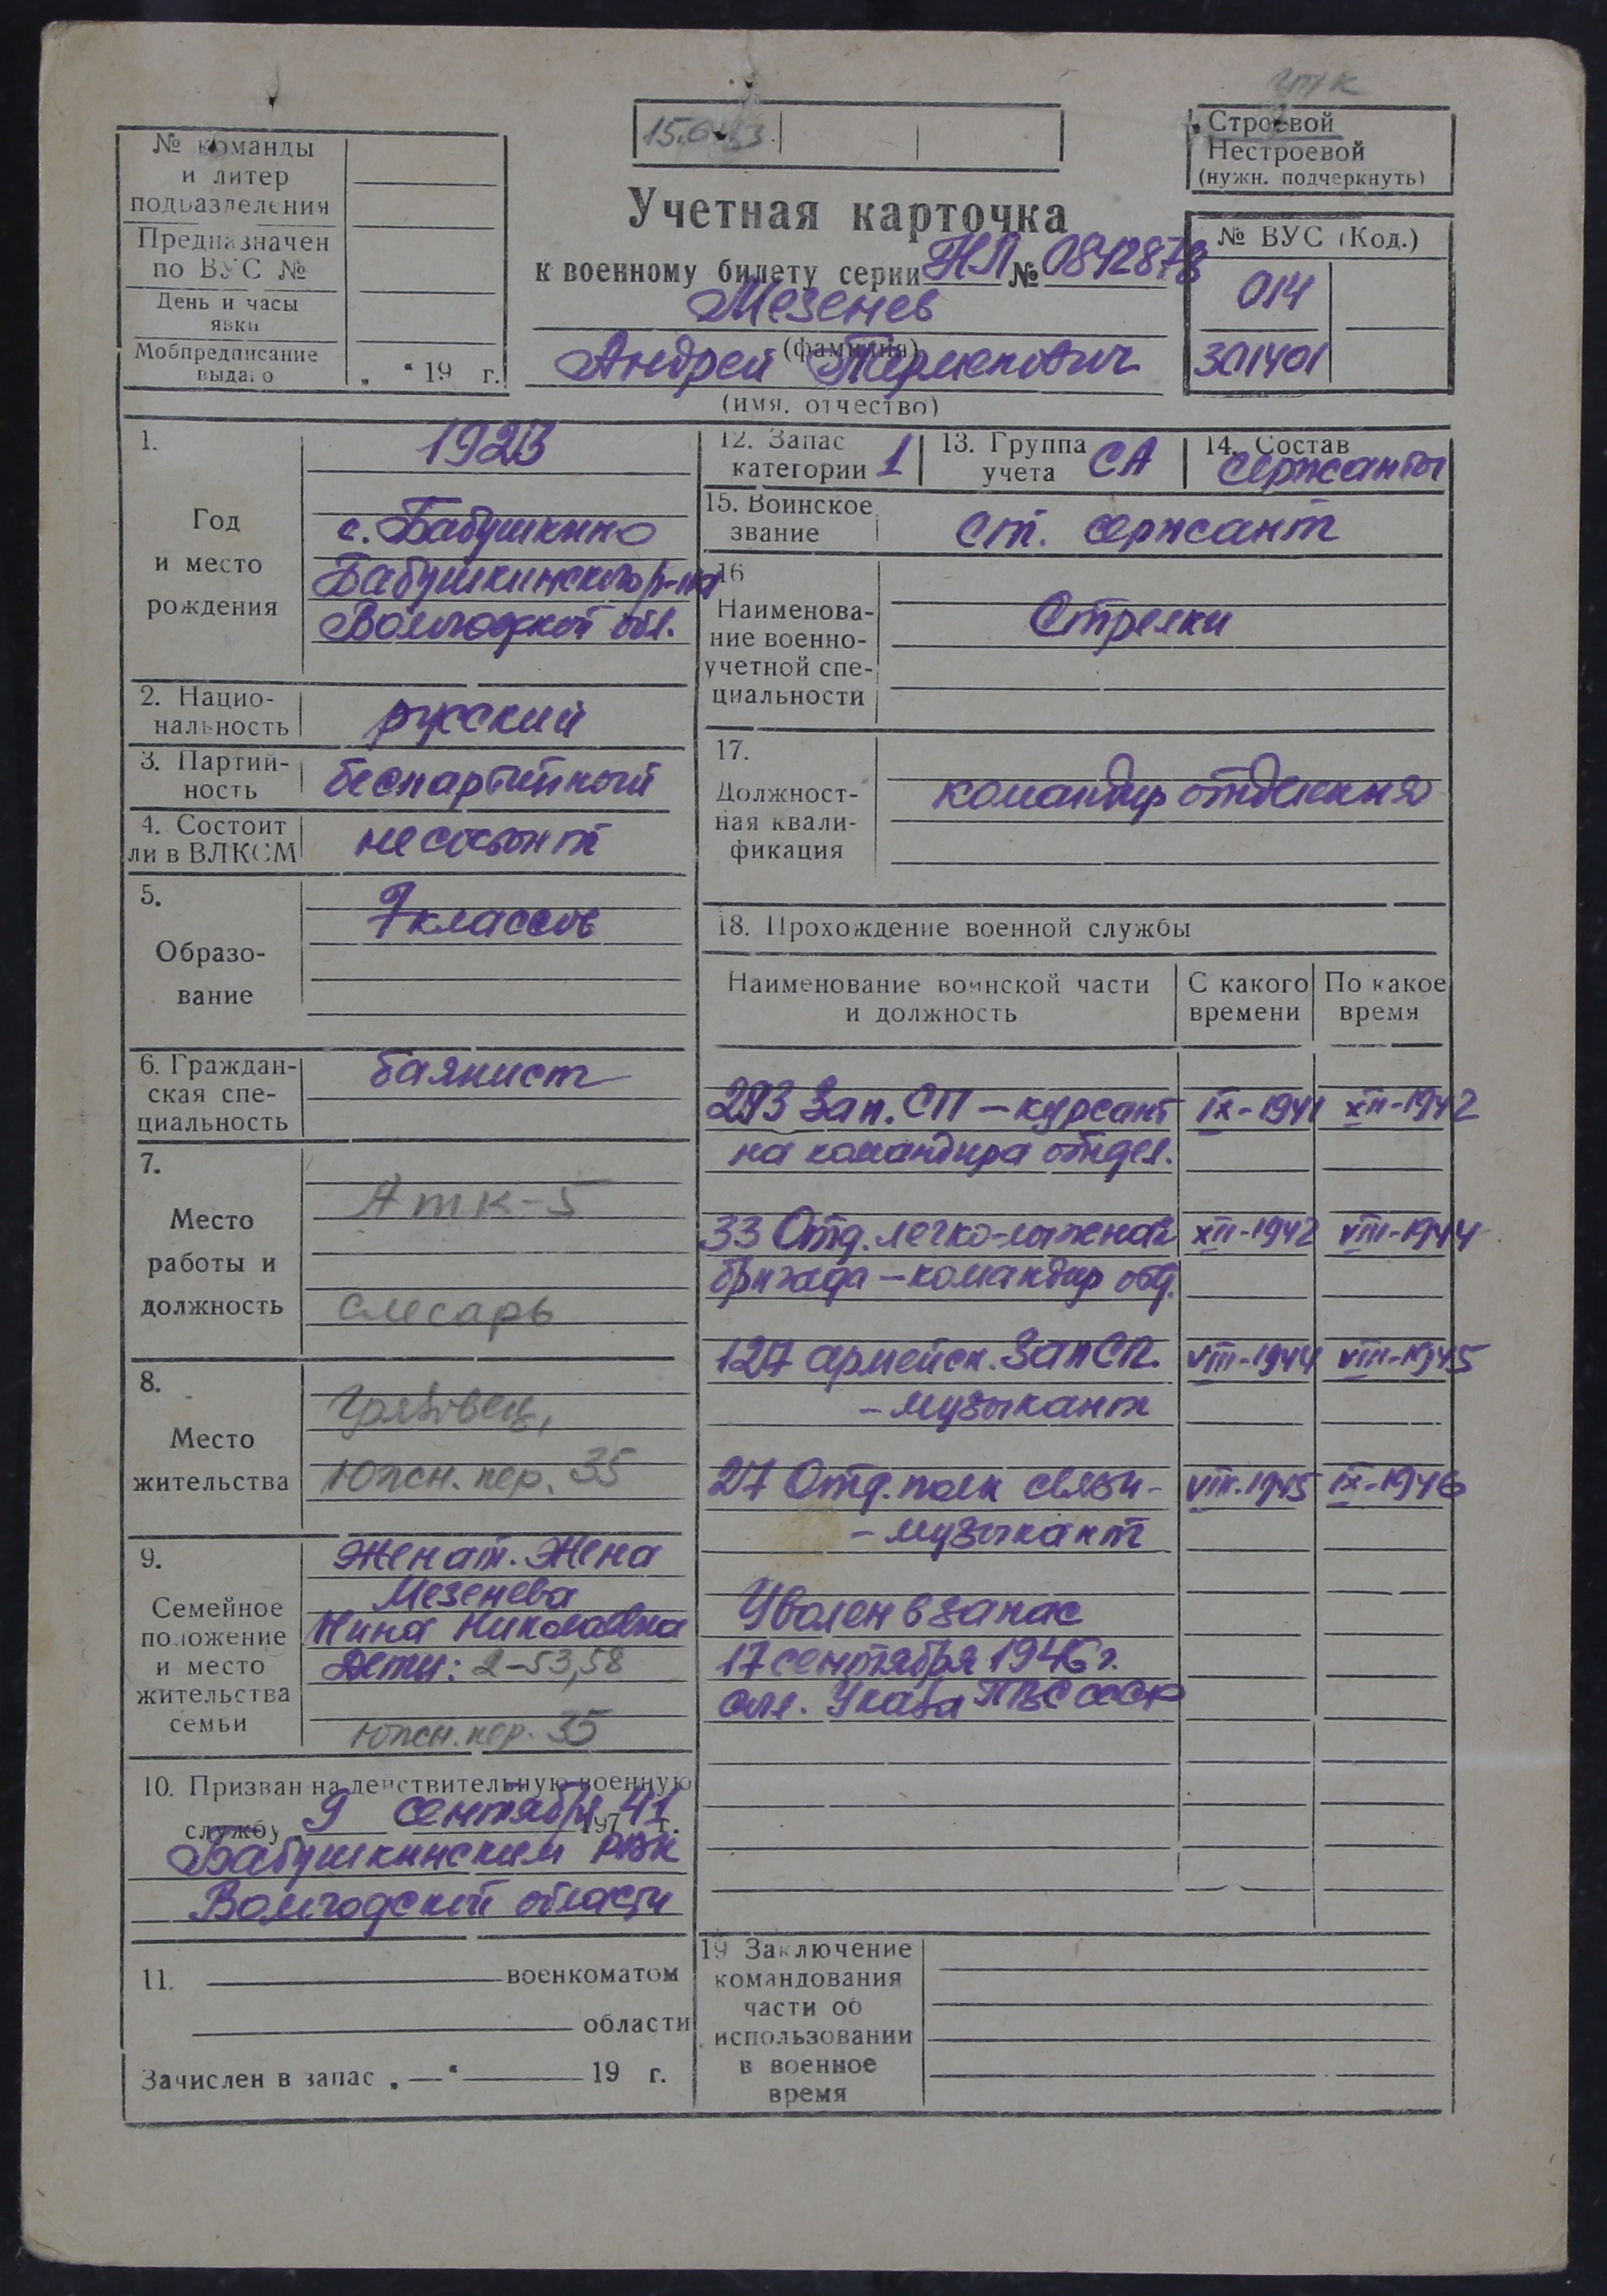 № команды
и литер
подразделения
Предназначен
по ВУС №
День и часы
явки
Мобпредписание
выдано
„ “ 19 г.
Строевой
Нестроевой
(нужн. подчеркнуть)
Учетная карточка
к военному билету серии НЛ № 0842878
Мезенев
(фамилия)
Андрей
(имя, отчество)
№ ВУС (Код.)
014
301401
1.
Год
и место
рождения
1923
с. Бабушкино
Бабушкинского р-на
Вологодской обл.
2. Нацио-
нальность
русский
3. Партий-
ность
беспартийный
4. Состоит
ли в ВЛКСМ
не состоит
5.
Образо-
вание
7 классов
6. Граждан-
ская спе-
циальность
баянист
7.
Место
работы и
должность
Атк-5
слесарь
8.
Место
жительства
Грязовец,
Южн. пер. 35
9.
Семейное
положение
и место
жительства
семьи
Женат. Жена
Мезенева
Нина Николаевна
Дети: 2-53,58
Южн. пер. 35
10. Призван на действительную военную
службу 9 сентября 41 197 г.
Бабушкинским РВК
Вологодской области
11. военкоматом
области
Зачислен в запас „ — “ 19 г.
12. Запас
категории 1
13. Группа
учета СА
14. Состав
сержанты
15. Воинское
звание
ст. сержант
16
Наименова-
ние военно-
учетной спе-
циальности
Стрелки
17.
Должност-
ная квали-
фикация
командир отделения
18. Прохождение военной службы
Наименование воинской части
и должность
С какого
времени
По какое
время
293 Зап. СП – курсант IX-1941 XII-1942
на командира отдел.
33 Отд. легко-лыжная XII-1942 VIII-1944
бригада – командир отд.
127 армейск. Зап СП. VIII-1944 VIII-1945
– музыкант
27 Отд. полк связи – VIII.1945 IX-1946
– музыкант
Уволен в запас
17 сентября 1946 г.
Указа ПВС СССР
19 Заключение
командования
части об
использовании
в военное
время